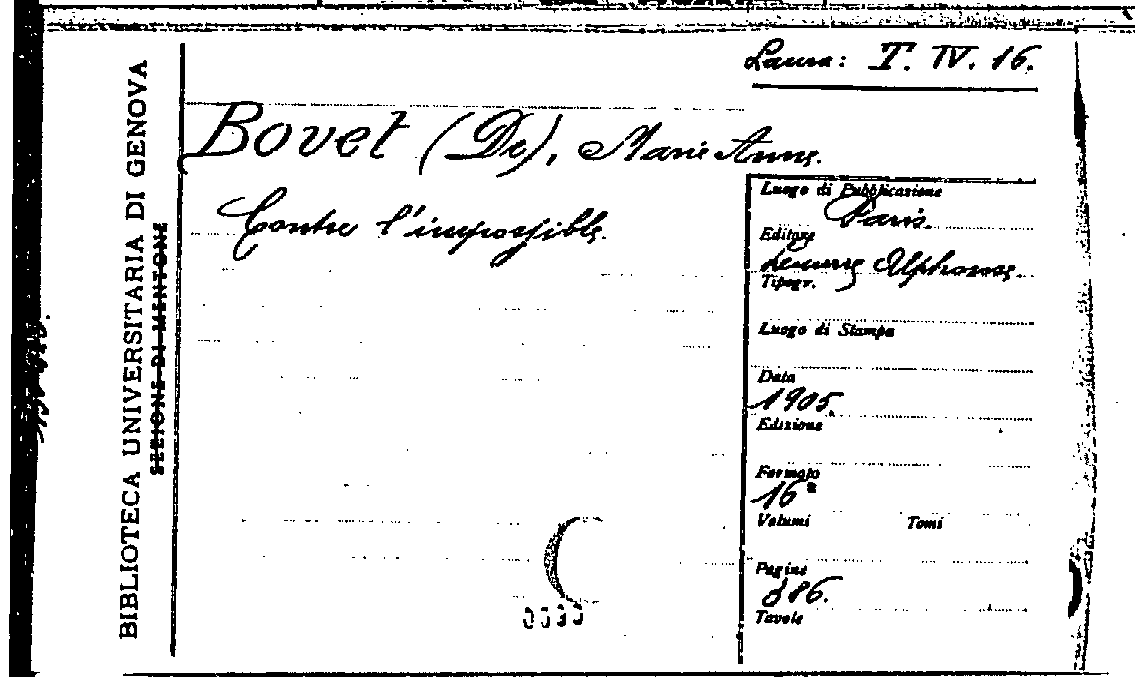 Laura: T. IV. 16.
BIBLIOTECA UNIVERSITARIA DI GENOVA
SEZIONE DI MENTONE
Bovet (De), Marie Anne.
Contre l'impossible.
Luogo di Pubblicazione
Paris.
Editore
Lemerre Alphonse.
Tipogr.
Luogo di Stampa
Data
1905.
Edizione
Formato
16º
Volumi Tomi
Pagine
386.
Tavole